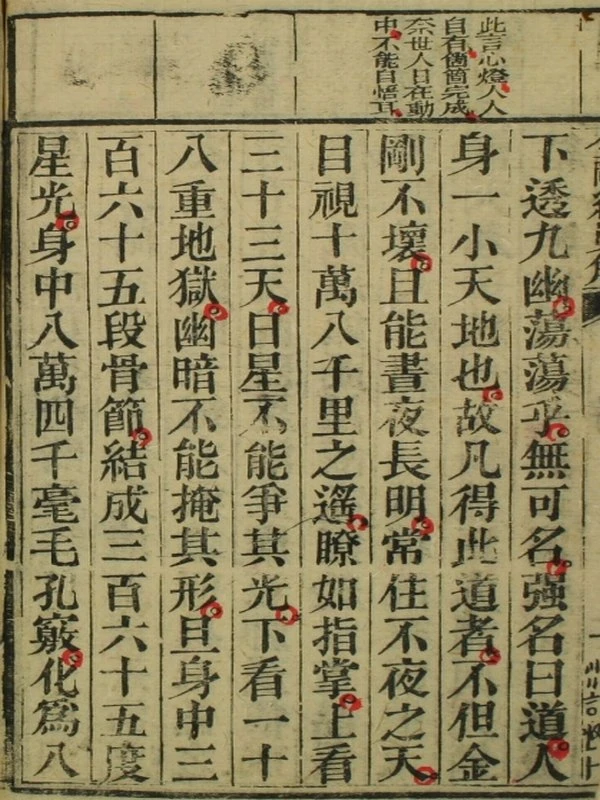 此言心燈人人
自有箇箇完成
奈世人日在動
中不能自悟耳
下透九幽蕩蕩乎無可名强名曰道人
身一小天地也故凡得此道者不但金
剛不壞且能晝夜長明常住不夜之天
目視十萬八千里之遙瞭如指掌上看
三十三天日星不能爭其光下看一十
八重地獄幽暗不能掩其形且身中三
百六十五段骨節結成三百六十五度
星光身中八萬四千毫毛孔竅化爲八